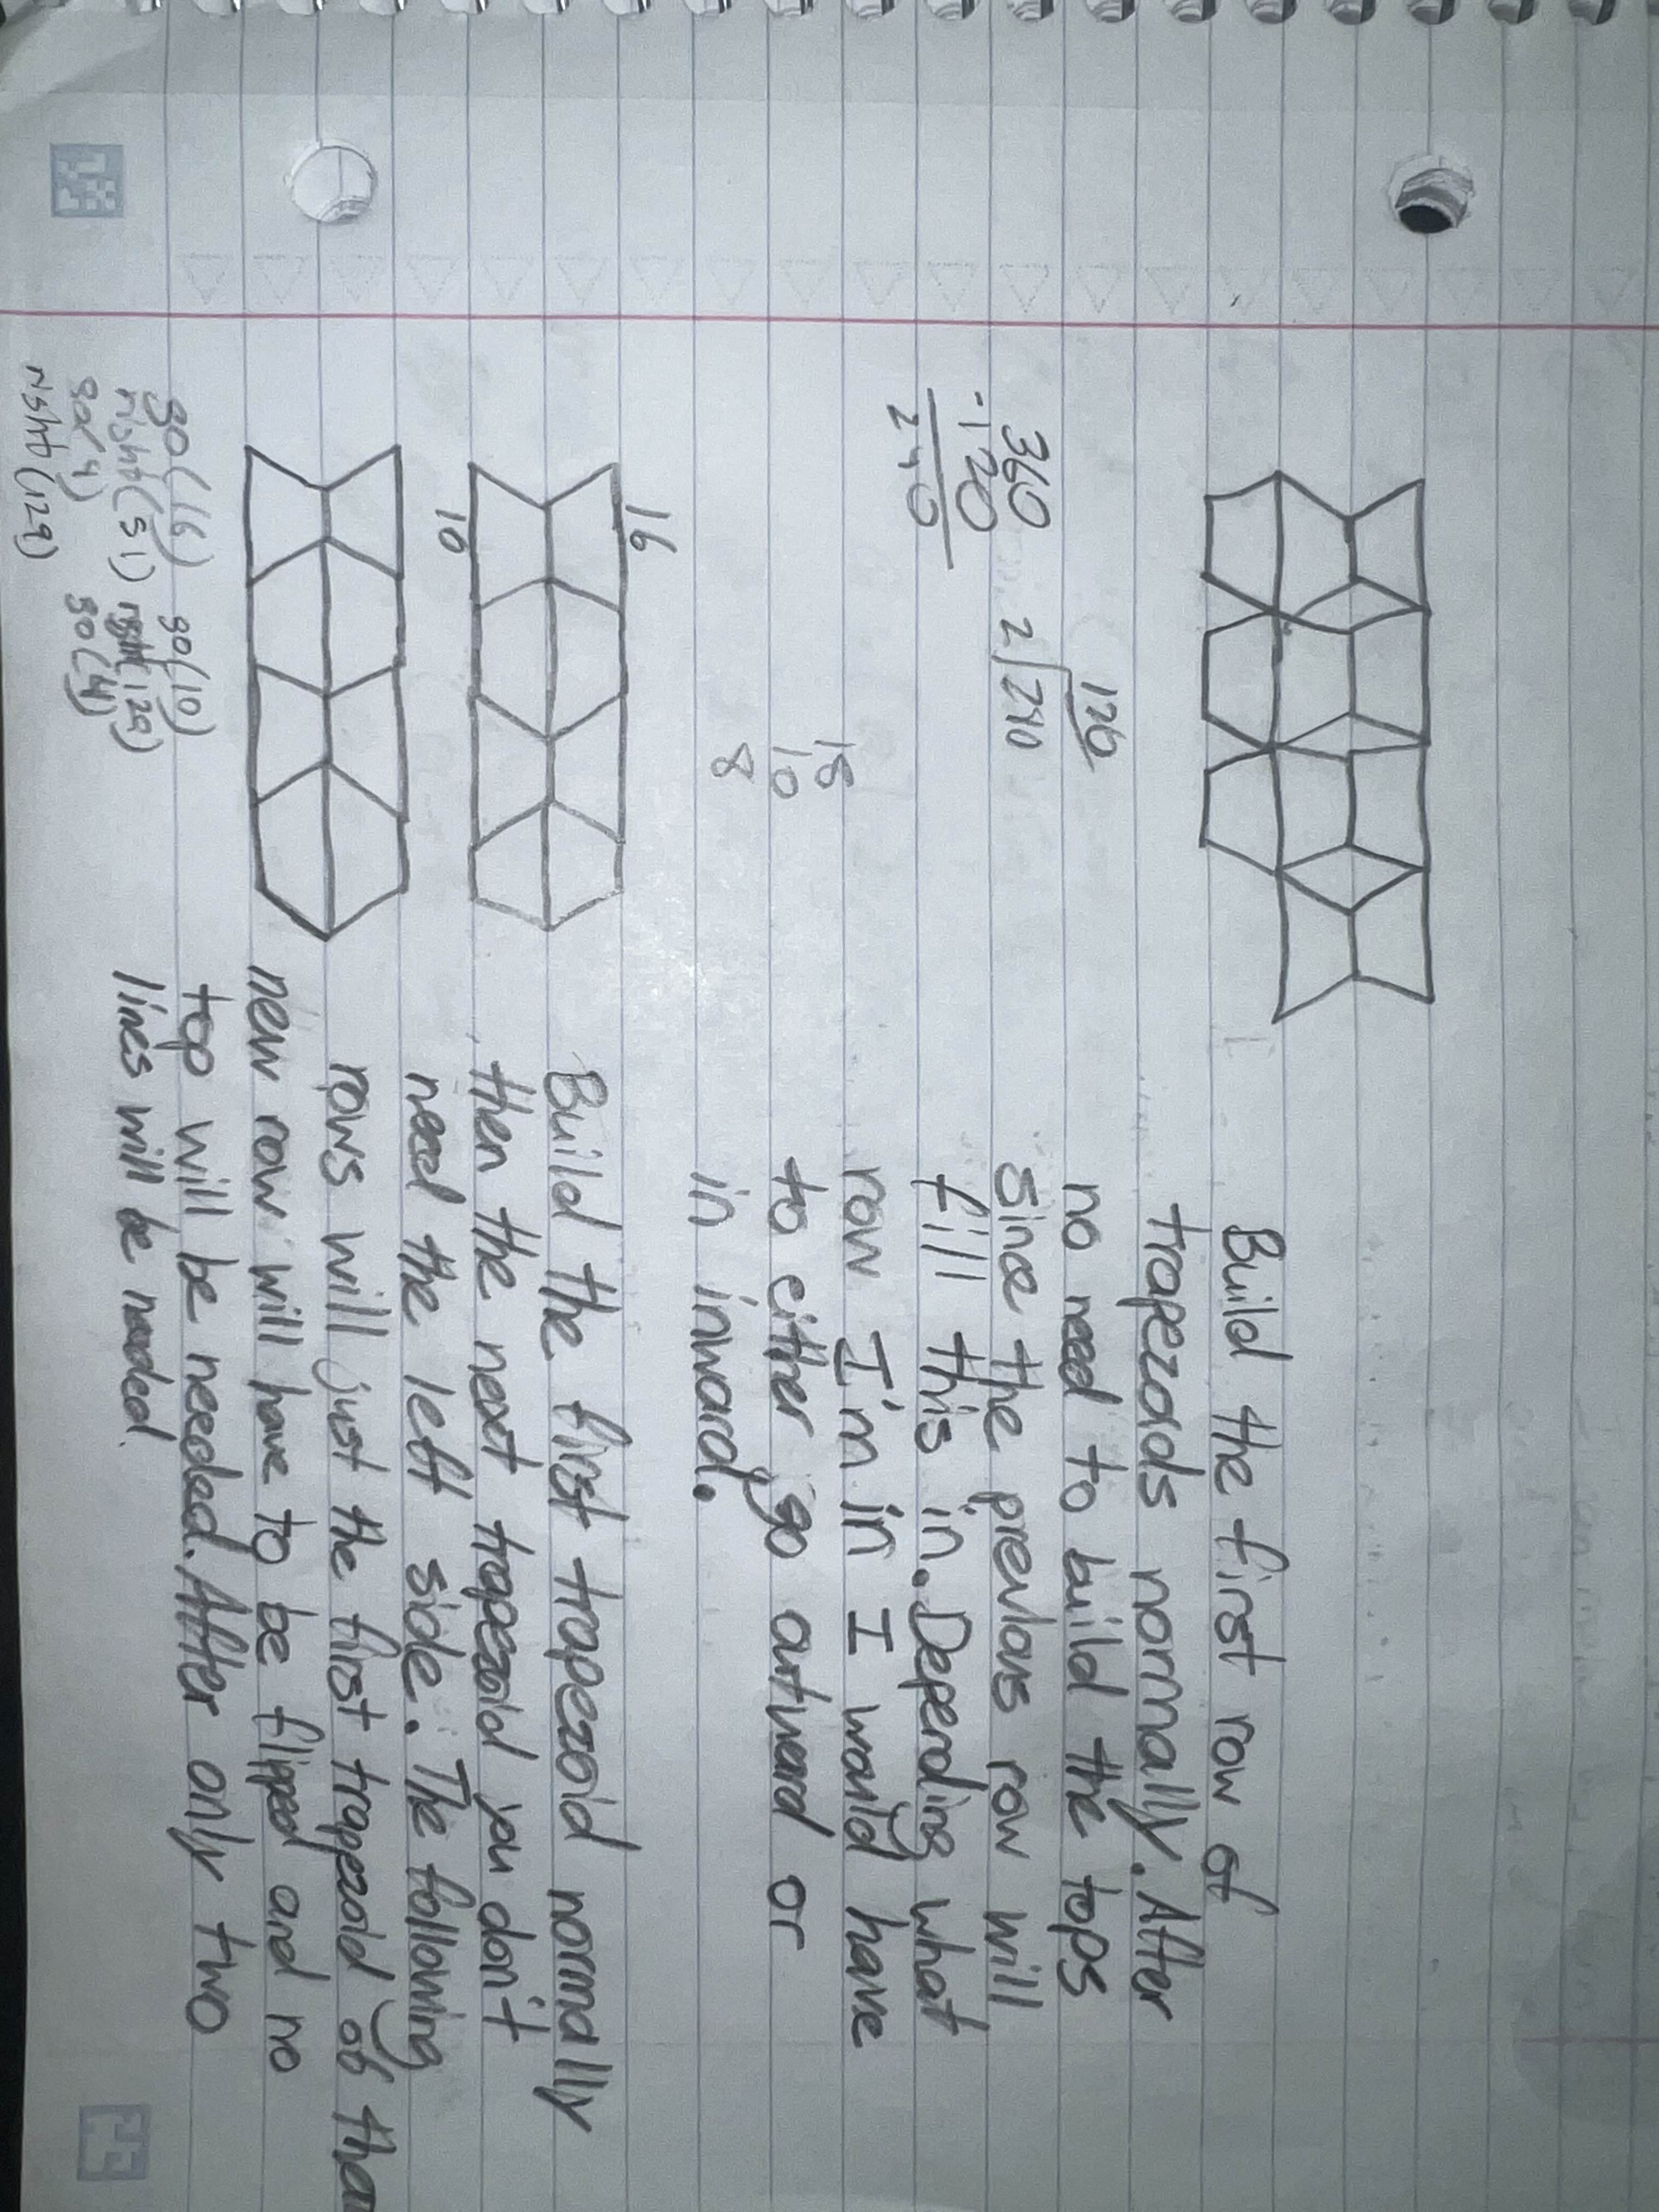 Build the first row of
trapezoids normally. After
no need to build the tops
since the previous row will
fill this in. Depending what
row I'm in I would have
to either go outward or
in inward.
360
-120
240
120
2 240
18
10
8
16
10
Build the first trapezoid normally
then the next trapezoid you don't
need the left side. The following
rows will just the first trapezoid of tha
new row will have to be flipped and no
top will be needed. After only two
lines will be needed.
go(16) go(10)
right(51) right(129)
go(4) go(4)
right(129)